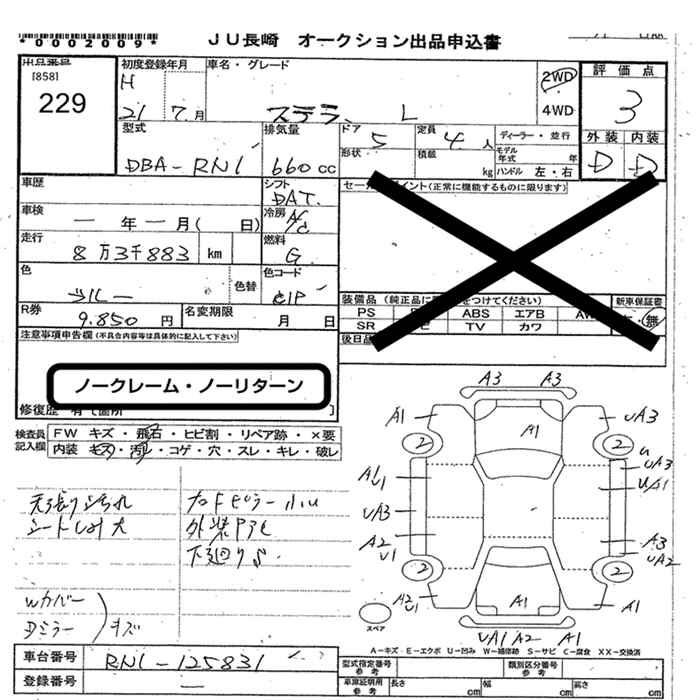 *0002009*
JU長崎 オークション出品申込書
出品番号
[858]
229
初度登録年月
H
21 7月
車名・グレード
ステラ L
2WD
4WD
評価点
3
外装 内装
D D
型式
DBA-RN1
排気量
660cc
ドア 5
形状
定員 4人
積載 kg
ディーラー・並行
モデル年式 年
ハンドル 左・右
車歴
シフト
DAT
車検
一年一月( 日)
冷房
A/C
走行
8万3千883 km
燃料
G
色
ブルー
色替
色コード
R券
9.850円
名変期限
月 日
注意事項申告欄(不具合内容等は具体的に記入して下さい)
ノークレーム・ノーリターン
修復歴 有
セー ポイント(正常に機能するものに限ります)
装備品(純正品に をつけてください)
新車保証書
PS ABS エアB
SR TV カワ
無
後日品
検査員記入欄
FW キズ・飛石・ヒビ割・リペア跡・×要
内装 キズ・汚れ・コゲ・穴・スレ・キレ・破レ
天張り汚れ
シートしみ大
外装
下廻りS
Wカバー
Dミラー
キズ
A3 A3
A1 A1 UA3
2 2
A1 U1 UA3
UA1
UA3
A2 U1 A3
UA2
2 2
A2 U1 A1 A1
UA1 A2 A1
スペア
A-キズ E-エクボ U-凹み W-補修跡 S-サビ C-腐食 XX-交換済
車台番号
RN1-125831
登録番号
一
型式指定番号参考
類別区分番号参考
車庫証明用参考
長さ cm
幅 cm
高さ cm